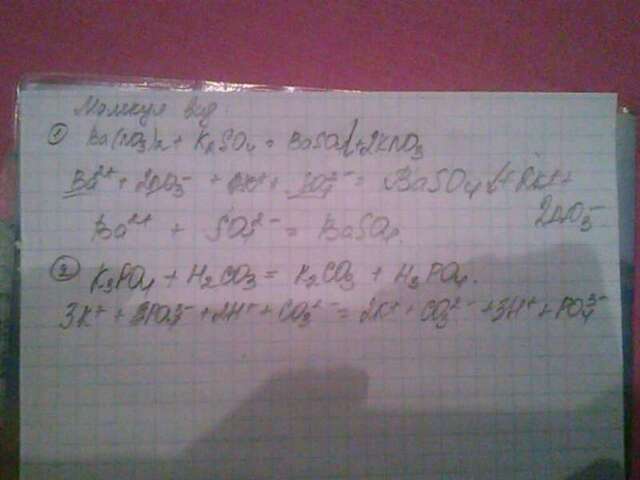 Молекул вид
① Ba(NO3)2 + K2SO4 = BaSO4↓ + 2KNO3
Ba2+ + 2NO3- + 2K+ + SO4 2- = BaSO4↓ + 2K+ +
2NO3-
Ba2+ + SO4 2- = BaSO4
② K3PO4 + H2CO3 = K2CO3 + H3PO4.
3K+ + 3PO4 3- + 2H+ + CO3 2- = 2K+ + CO3 2- + 3H+ + PO4 3-